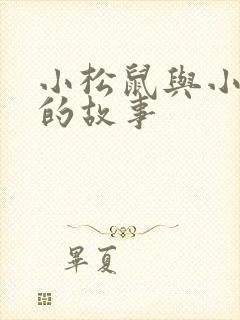 小松鼠與小
的故事
畢夏